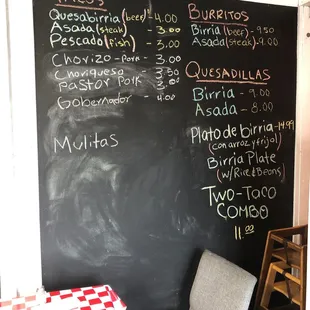 TACOS
Quesabirria (beef) - 4.00
Asada (steak) - 3.00
Pescado (fish) - 3.00
Chorizo - Pork - 3.00
Choriqueso - 3.50
Pastor Pork - 3.00
Gobernador - 4.00
Mulitas
BURRITOS
Birria (beef) - 9.50
Asada (steak) - 9.00
QUESADILLAS
Birria - 9.00
Asada - 8.00
Plato de birria - 14.99
(con arroz y frijol)
Birria Plate
(w/Rice & Beans)
TWO-TACO
COMBO
11.00